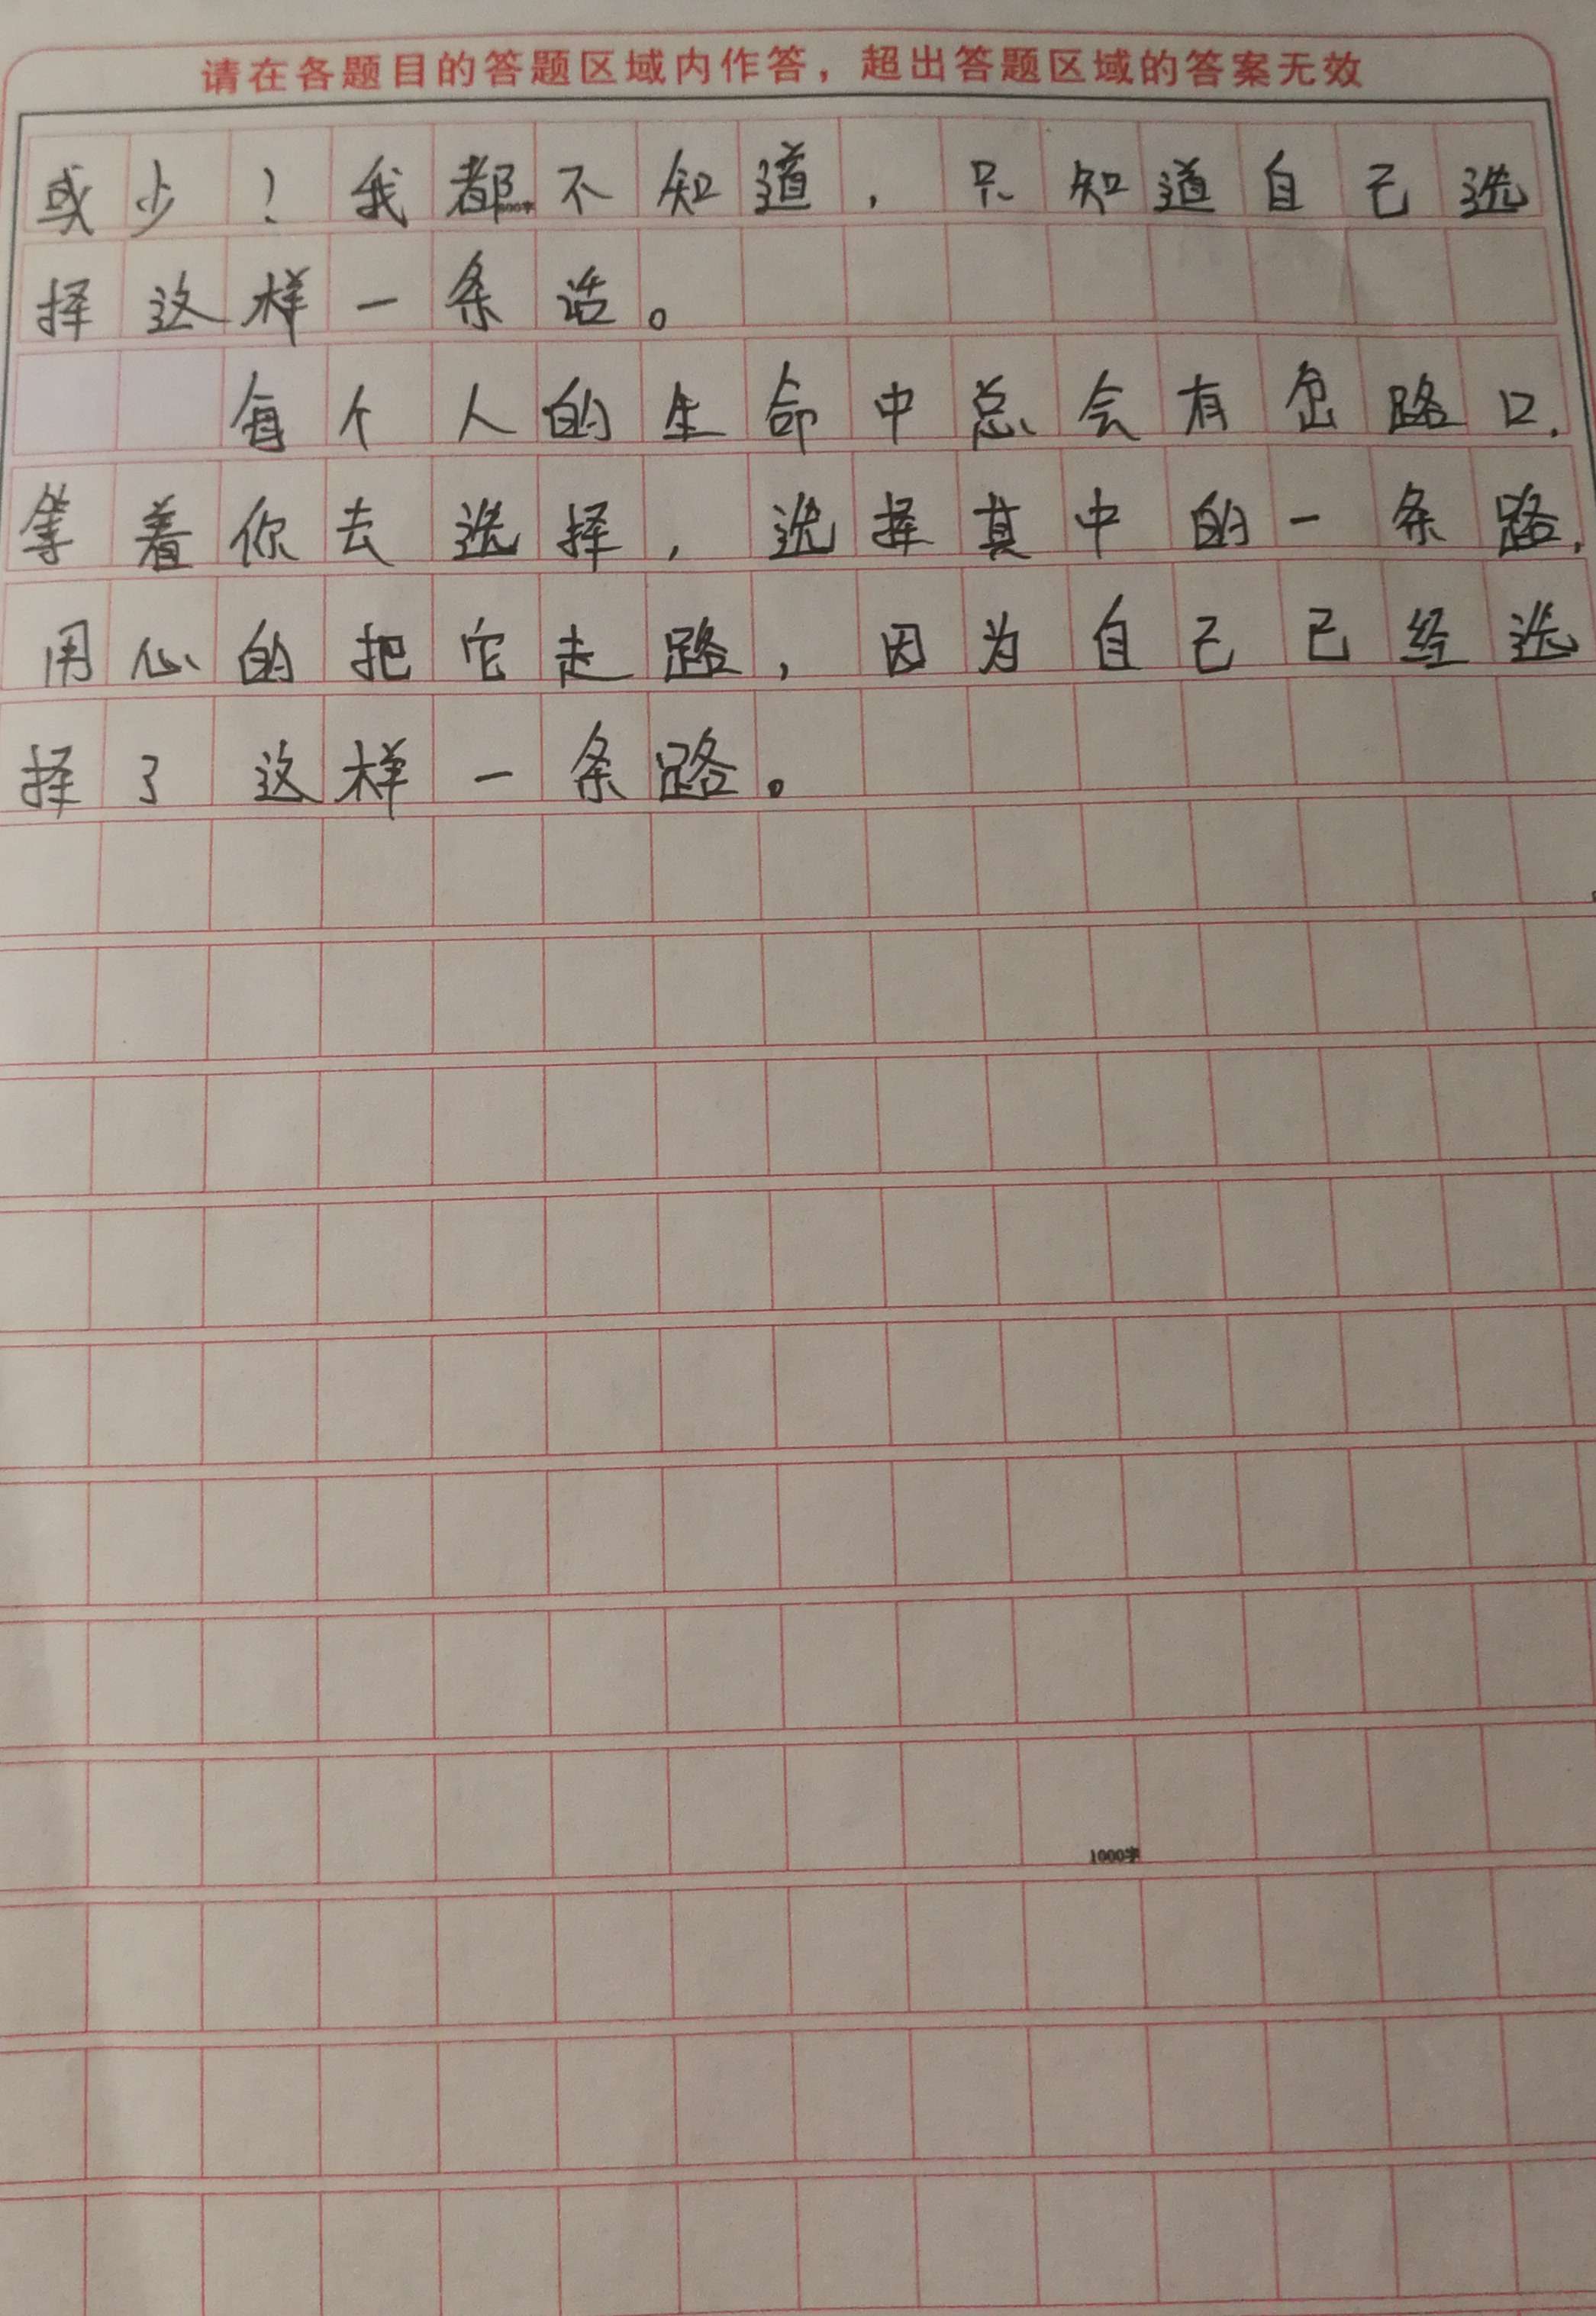 请在各题目的答题区域内作答，超出答题区域的答案无效
或少？我都不知道，只知道自己选
择这样一条
每个人的生命中总会有岔路口，
等着你去选择，选择其中的一条路，
用心的把它走路，因为自己已经选
择了这样一条路。
1000字